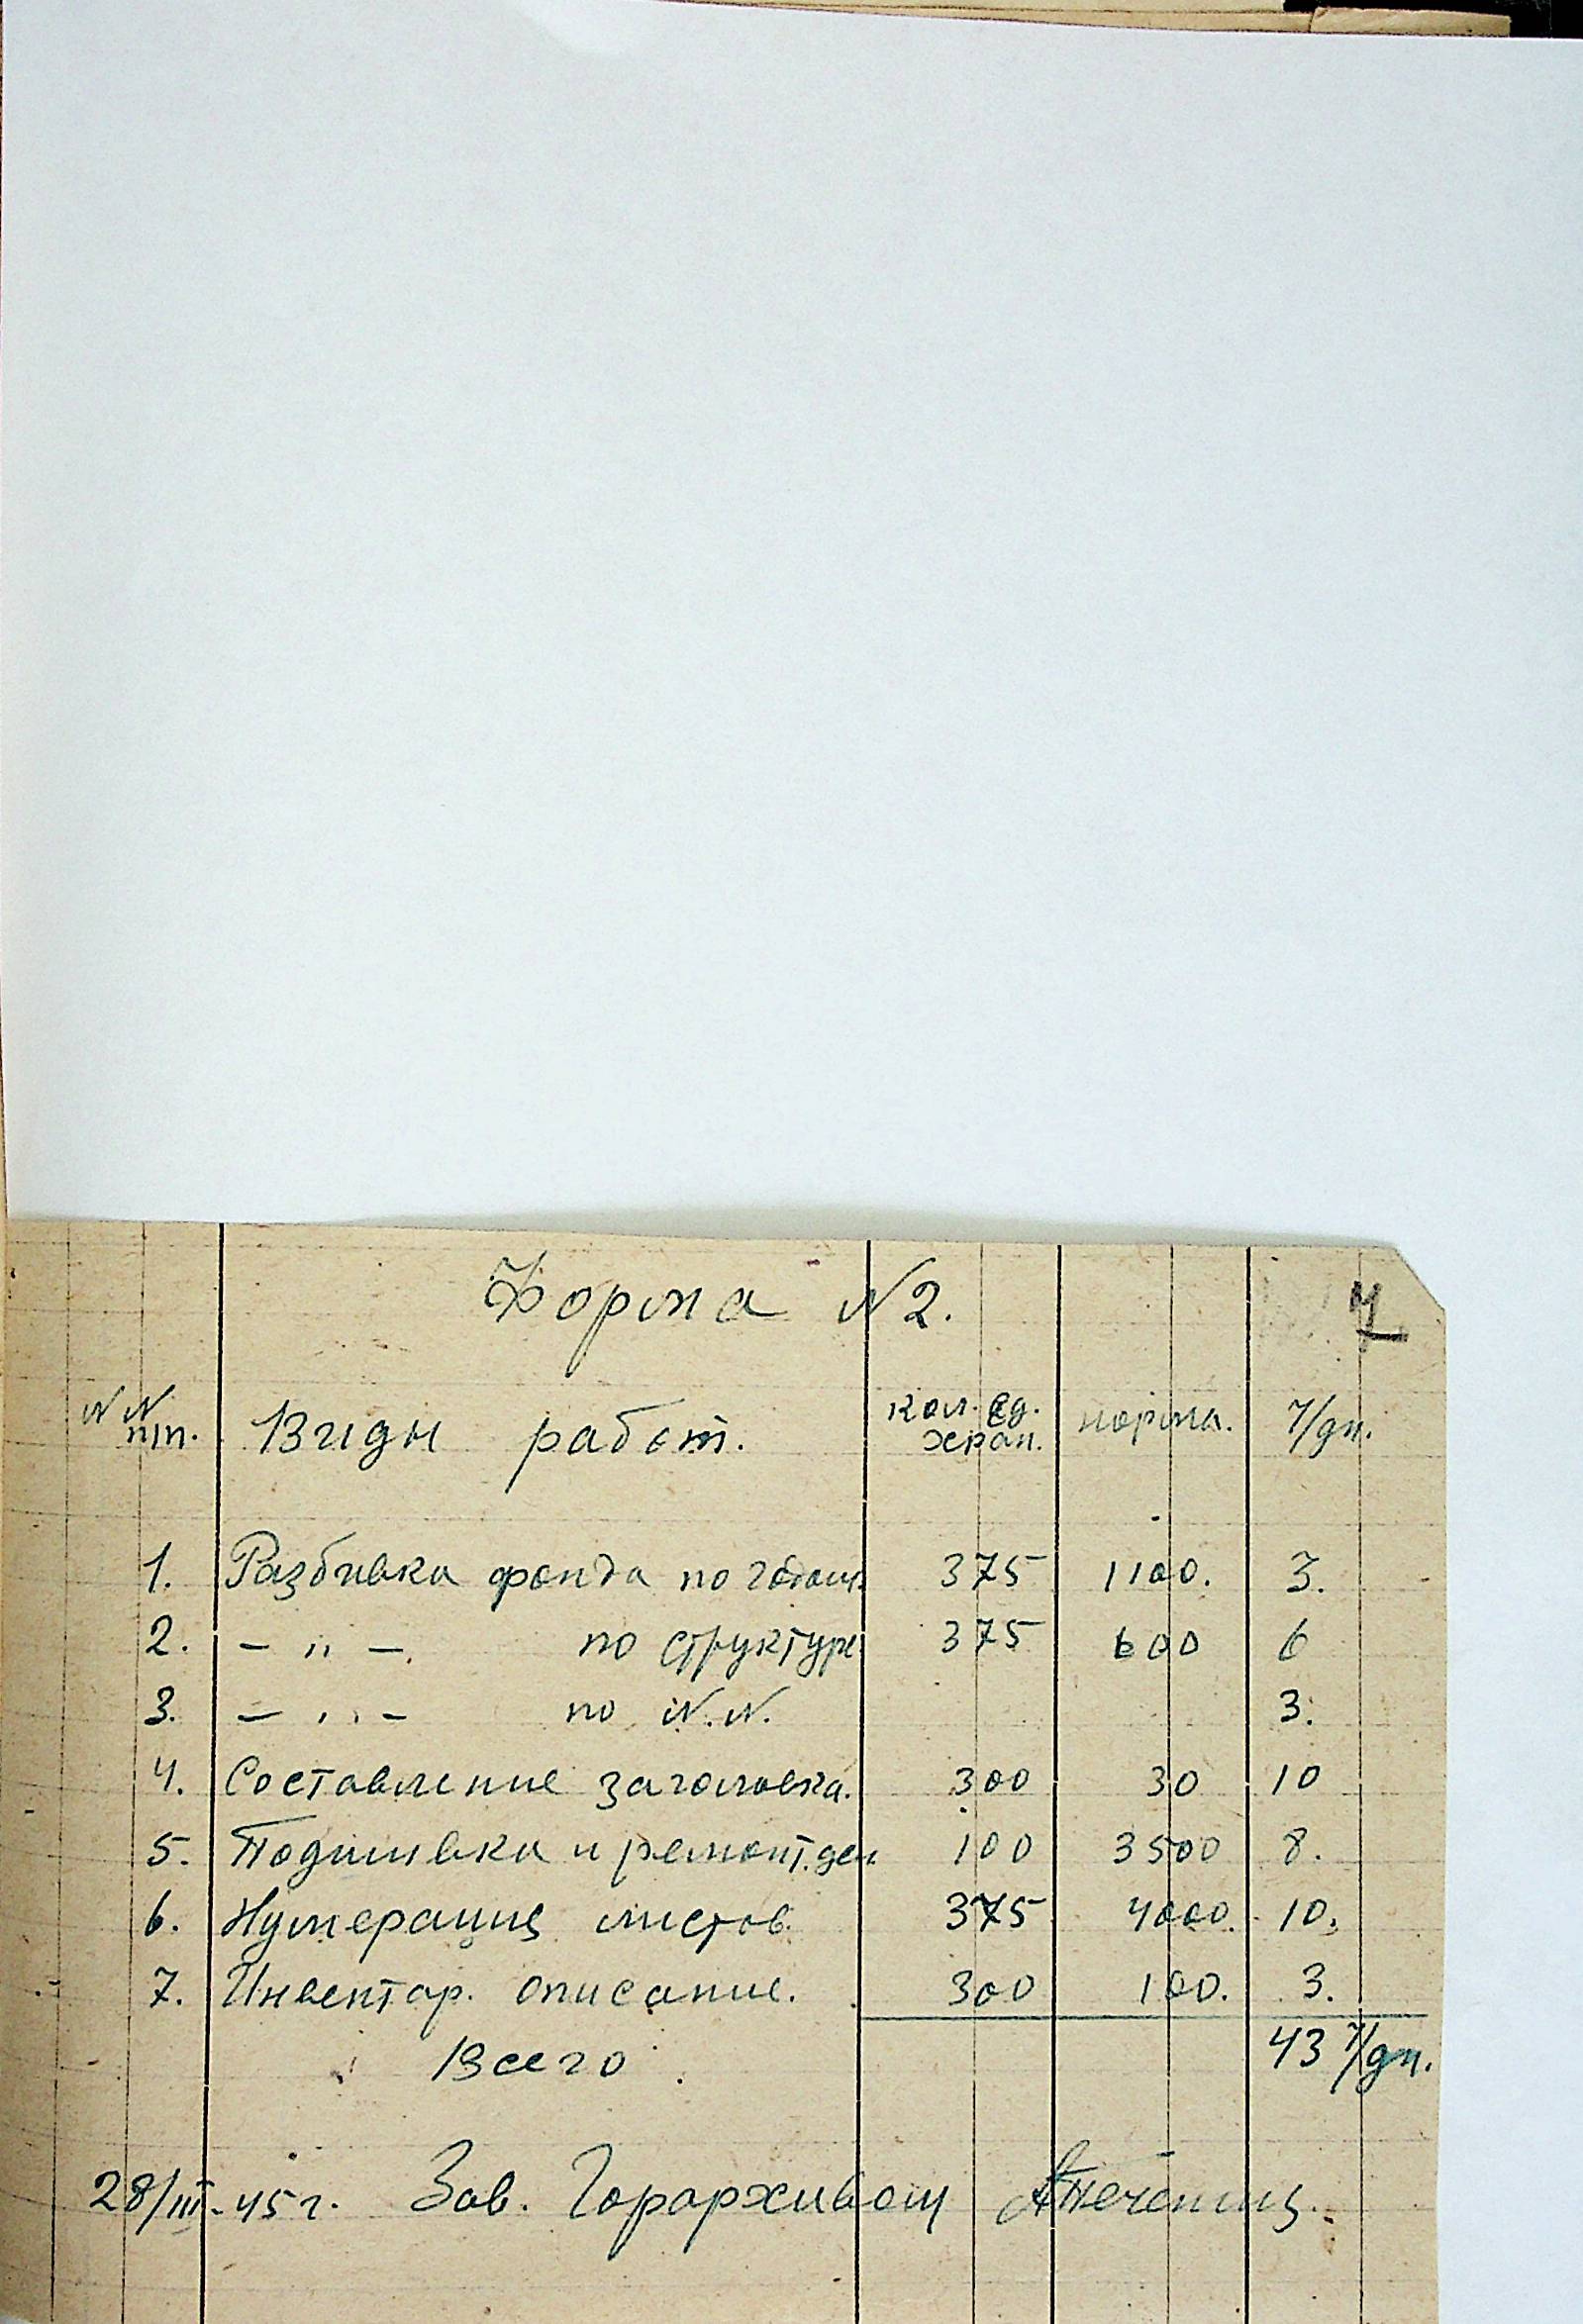 Форма N2.
4
NN п/п. Виды работ. Кол. ед. хран. норма. ч/дн.
1. Разбивка фонда по годам. 375 1100. 3.
2. — " —. по структуре 375 600 6
3. — " — по N.N. 3.
4. Составление заголовка. 300 30 10
5. Подшивка и ремонт. дел 100 3500 8.
6. Нумерация листов. 375 4000. 10.
7. Инвентар. описание. 300 100. 3.
Всего. 43 ч/дн.
28/III-45г. Зав. Горархивом